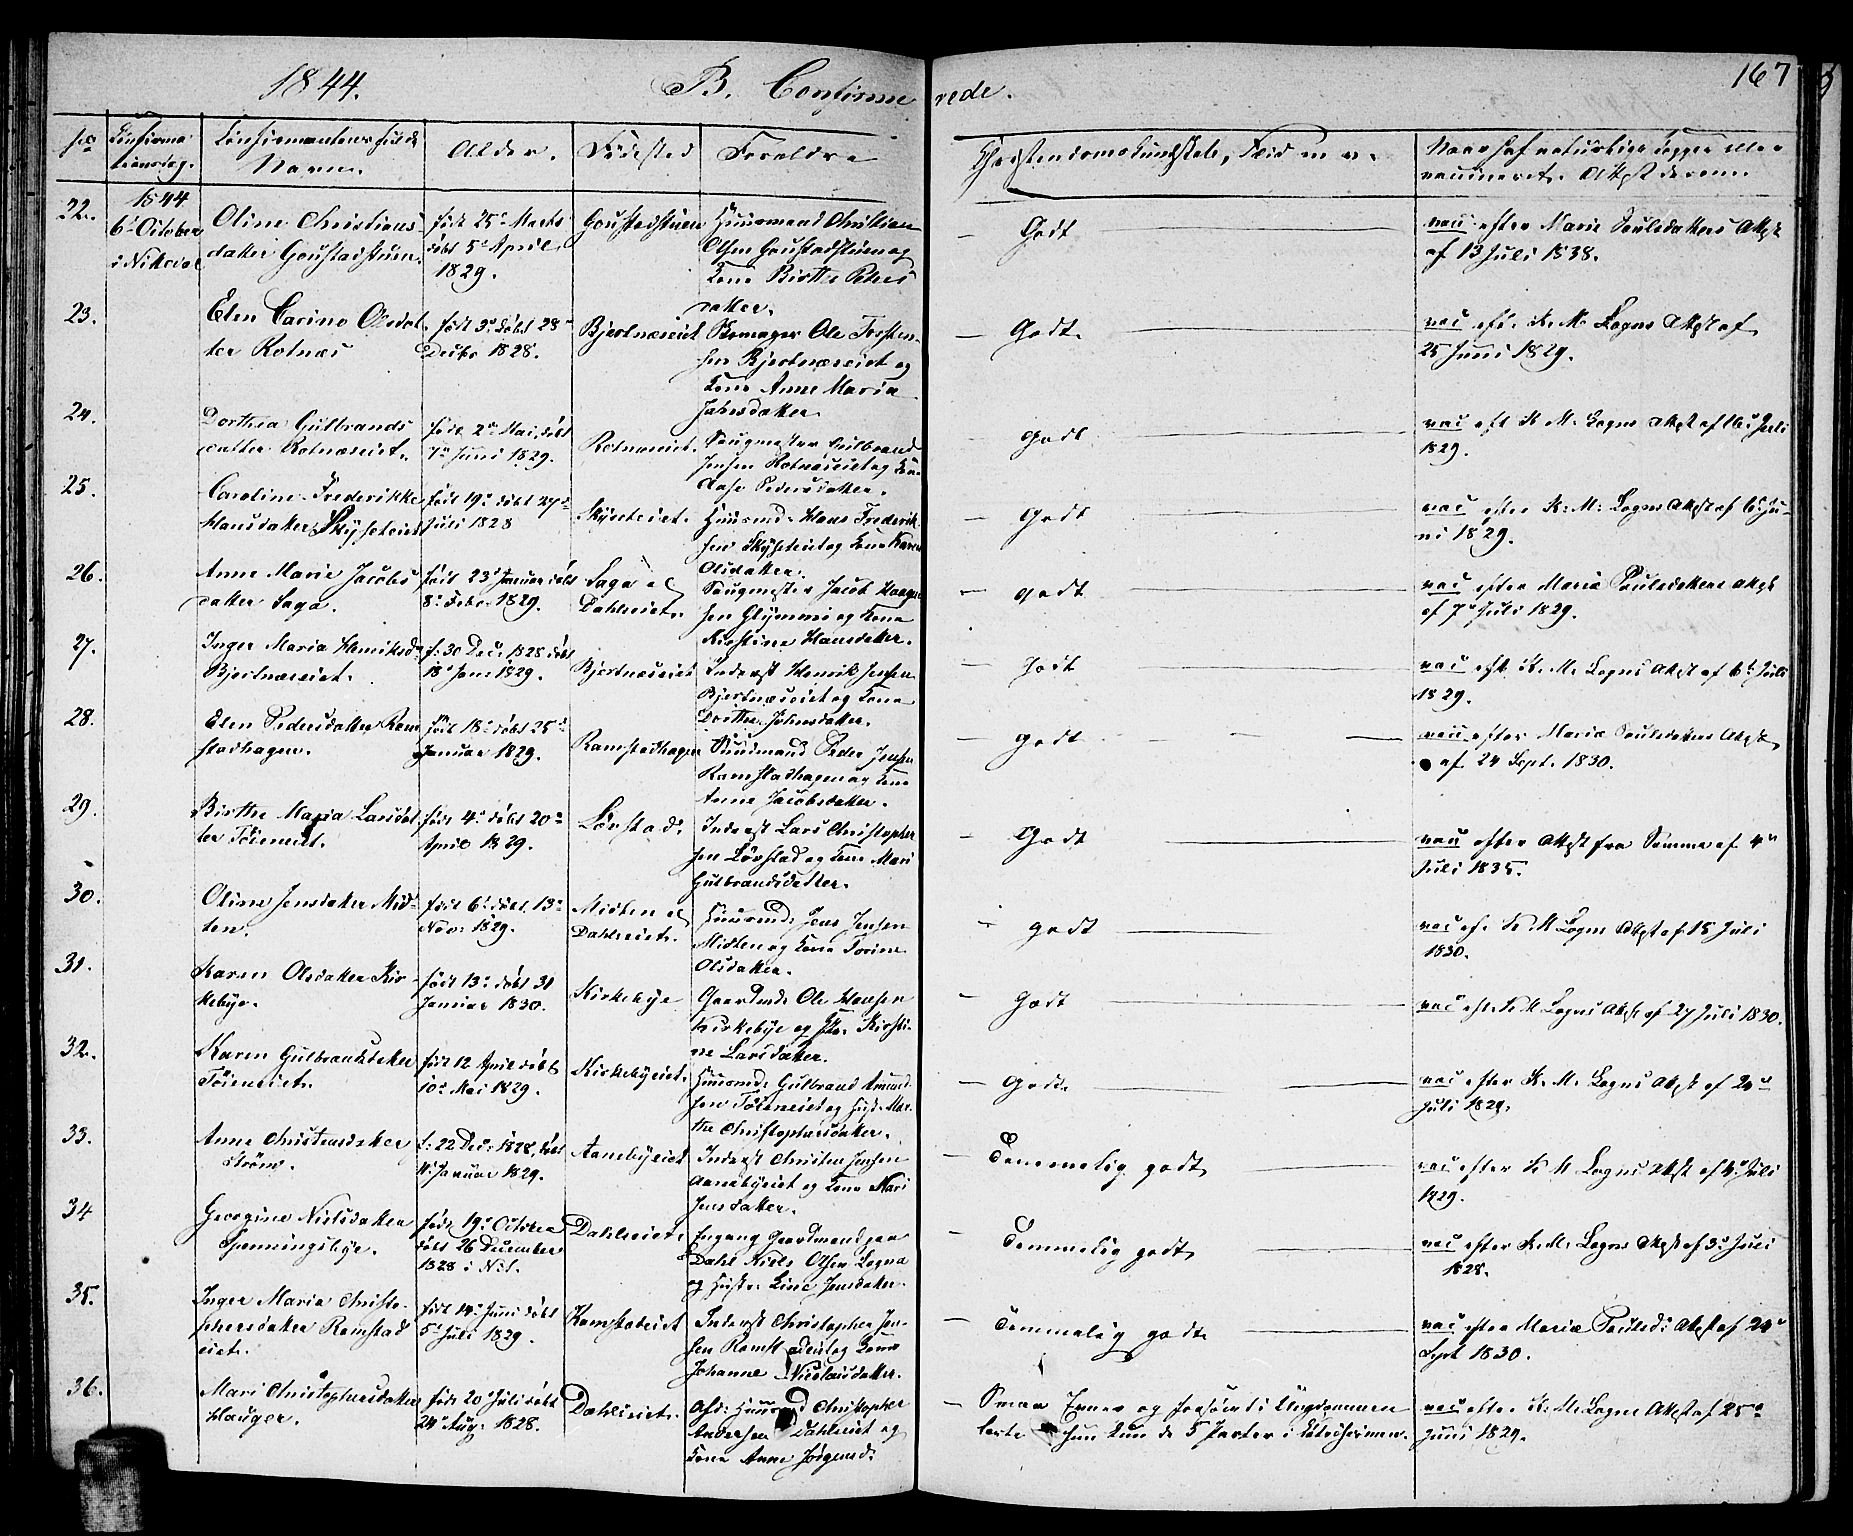 1844.
B. Confirmerede.
167
No
Confirmationsdag.
Confirmantens fulde Navn.
Alder.
Fødested
Forældre
Christendomskundskab, Flid m. v.
Naar haf naturlige Kopper eller vaccineret. Attest derom.
22.
1844
6te October
i Nitedal
Oline Christiansdatter Goustadstuen
født 25de Marts
døbt 5te April
1829.
Goustadstuen
Huusmand Christian
Olsen Goustadstuen og
Kone Birthe Peders
datter.
Godt
vacc. efter Marie Poulsdatters Attest
af 13 Juli 1838.
23.
Elen Carine Olsdat
ter Rotnæs
født 3de døbt 28de
Decbr 1828.
Bjertnæseiet
Skomager Ole Torsten
sen Bjertnæseiet og
Kone Anne Maria
Jahnsdatter.
Godt.
vac. eft. K. M. Logns Attest af
25 Juni 1829.
24.
Dorthea Gulbrands
datter Rotnæseiet.
født 2de Mai, døbt
7de Juni 1829.
Rotnæseiet.
Saugmester Gulbrand
Jensen Rotnæseiet og Kone
Aase Pedersdatter.
Godt
vac eft K. M. Logns Attest af 16de Juli
1829.
25.
Caroline Frederikke
Hansdatter Skyseteiet
født 19de døbt 27de
Juli 1828
Skyseteiet.
Huusmd. Hans Frederik
sen Skyseteiet og Kone Karen
Olsdatter.
Godt
vac. efter K: M: Logns Attest af 6te Ju-
ni 1829.
26.
Anne Marie Jacobs
datter Saga.
født 23de Januar døbt
8de Febr. 1829.
Saga og
Dahleiet.
Saugmester Jacob Haagen
sen Glømmi og Kone
Kirstine Hansdatter.
godt
vac efter Maria Poulsdatters Attest
af 7de Juli 1829.
27.
Inger Maria Henriksd.
Bjertnæseiet.
f. 30 Dec. 1828 døbt
18de Jan. 1829.
Bjertnæseiet
Inderst Henrik Jensen
Bjertnæseiet og Kone
Dorthe Johnsdatter.
Godt
vac. eft. K. M. Logns Attest af 6te Juli
1829.
28.
Elen Pedersdatter Ram
stadhagen.
født 18de døbt 25de
Januar 1829.
Ramstadhagen
Huusmand Peder Jensen
Ramstadhagen og Kone
Anne Jacobsdatter.
godt
vac. efter Maria Poulsdatters Attest
af 24 Sept. 1830.
29.
Birthe Maria Larsdat
ter Töieneiet.
født 4de døbt 20de
April 1829.
Lörstad.
Inderst Lars Christopher
sen Lörstad og Kone Mari
Gulbrandsdatter.
Godt
vac efter Attest fra Samme af 4de
Juli 1835.
30.
Oline Jensdatter Mid-
ten.
født 6te døbt 13de
Nov. 1829.
Midten og
Dahleiet.
Huusmd. Jens Jensen
Midten og Kone Torine
Olsdatter.
godt
vac ef. K M Logns Attest af 15 Juli
1830.
31.
Karen Olsdatter Kir-
kebye.
født 13de døbt 31
Januar 1830.
Kirkebye
Gaardmd. Ole Hansen
Kirkebye og Hstr. Kirsti-
ne Larsdatter.
Godt
vac eft. K M Logns Attest af 27 Juli 1830.
32.
Karen Gulbrandsdatter
Töieneiet.
født 12 April døbt
10de Mai 1829.
Kirkebyeiet.
Huusmd. Gulbrand Amund
sen Töieneiet og Hust. Mar-
the Christophersdatter.
Godt.
vac efter K. M. Logns Attest af 2den
Juli 1829.
33.
Anne Christensdatter
Ström.
f. 22 Dec. 1828, døbt
11 Januar 1829.
Aanebyeiet
Inderst Christen Jensen
Aanebyeiet og Kone Kari
Jensdatter.
Temmelig godt
vac efter K M Logns Attest af 4de Juli
1829.
34
Georgine Nielsdatter
Spenningsbye.
født 19de October
døbt 26 December
1828 i Nit.
Dahleiet.
Ungang Gaardmand paa
Dahl Niels Olsen Logna
og Hustr. Line Jensdatter.
Temmelig godt
vac efter K. M. Logns Attest af 3de Juli
1828.
35.
Inger Maria Christo-
phersdatter Ramstad
eiet.
født 14de Juni døbt
5te Juli 1829.
Ramstadeiet
Inderst Christopher Jen-
sen Ramstadeiet og Kone
Johanne Nicolaisdatter.
Temmelig godt
vac efter Maria Poulsd: Attest af 24de
Sept 1830.
36.
Mari Christophersdatter
Hauger.
født 20de Juli døbt
24de Aug. 1828.
Dahleiet.
Afd. Huusmd Christopher
Andersen Dahleiet og
Kone Anne Jörgensd.
Smaa Evner og forsömt i Ungdommen
lærte hun kun de 5 Parter i Katechismen.
vac efter K. M. Logns Attest af 25de
Juni 1829.